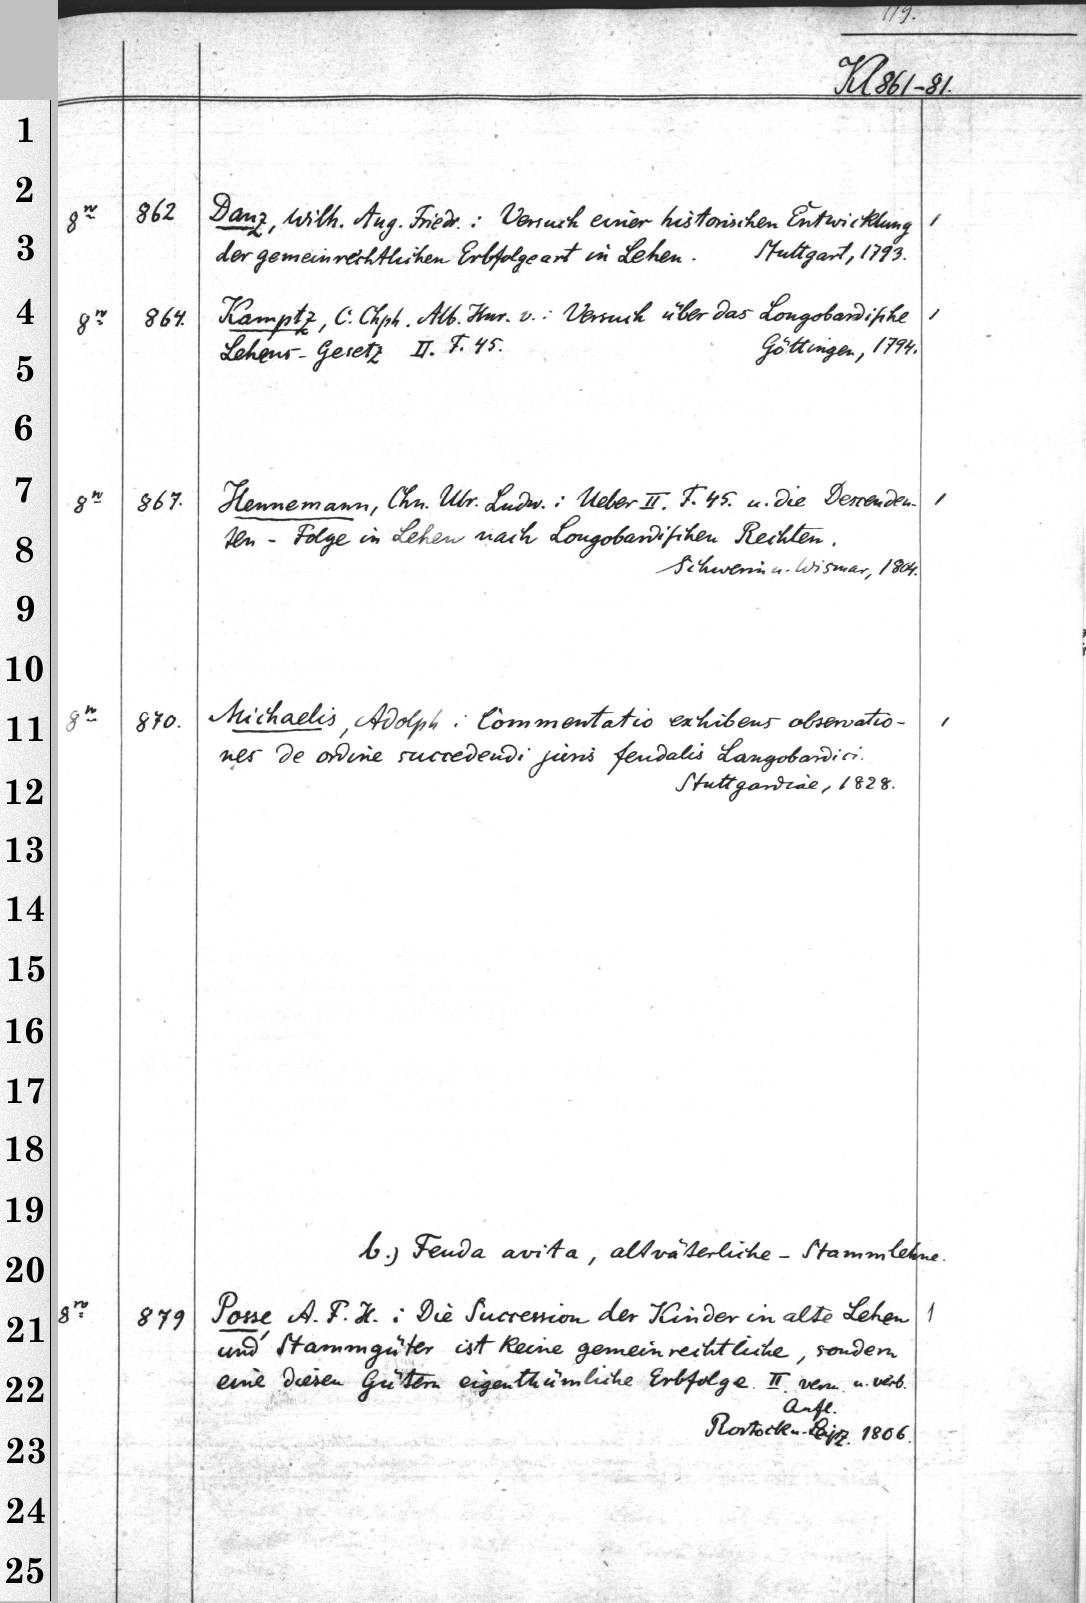 119.
Kl 861-81.
1
2
8º 862 Danz, Wilh. Aug. Friedr. : Versuch einer historischen Entwicklung 1
3
der gemeinrechtlichen Erbfolgeart in Lehen. Stuttgart, 1793.
4
8º 864. Kamptz, C. Chph. Alb. Hnr. v. : Versuch über das Longobardische 1
Lehens-Gesetz II. F. 45. Göttingen, 1794.
5
6
7
8º 867. Hennemann, Chn. Ulr. Ludw. : Ueber II. F. 45. u. die Descenden- 1
8
ten - Folge in Lehen nach Longobardischen Rechten.
Schwerin u. Wismar, 1804.
9
10
11
8º 870. Michaelis, Adolph : Commentatio exhibens observatio- 1
nes de ordine succedendi juris feudalis Langobardici.
12
Stuttgardiae, 1828.
13
14
15
16
17
18
19
b.) Feuda avita, altväterliche - Stammlehne.
20
21
8º 879 Posse, A. F. H. : Die Succession der Kinder in alte Lehen 1
und Stammgüter ist keine gemeinrechtliche, sondern
22
eine diesen Gütern eigenthümliche Erbfolge. II. verm. u. verb.
Aufl.
23
Rostock u. Leipz. 1806.
24
25